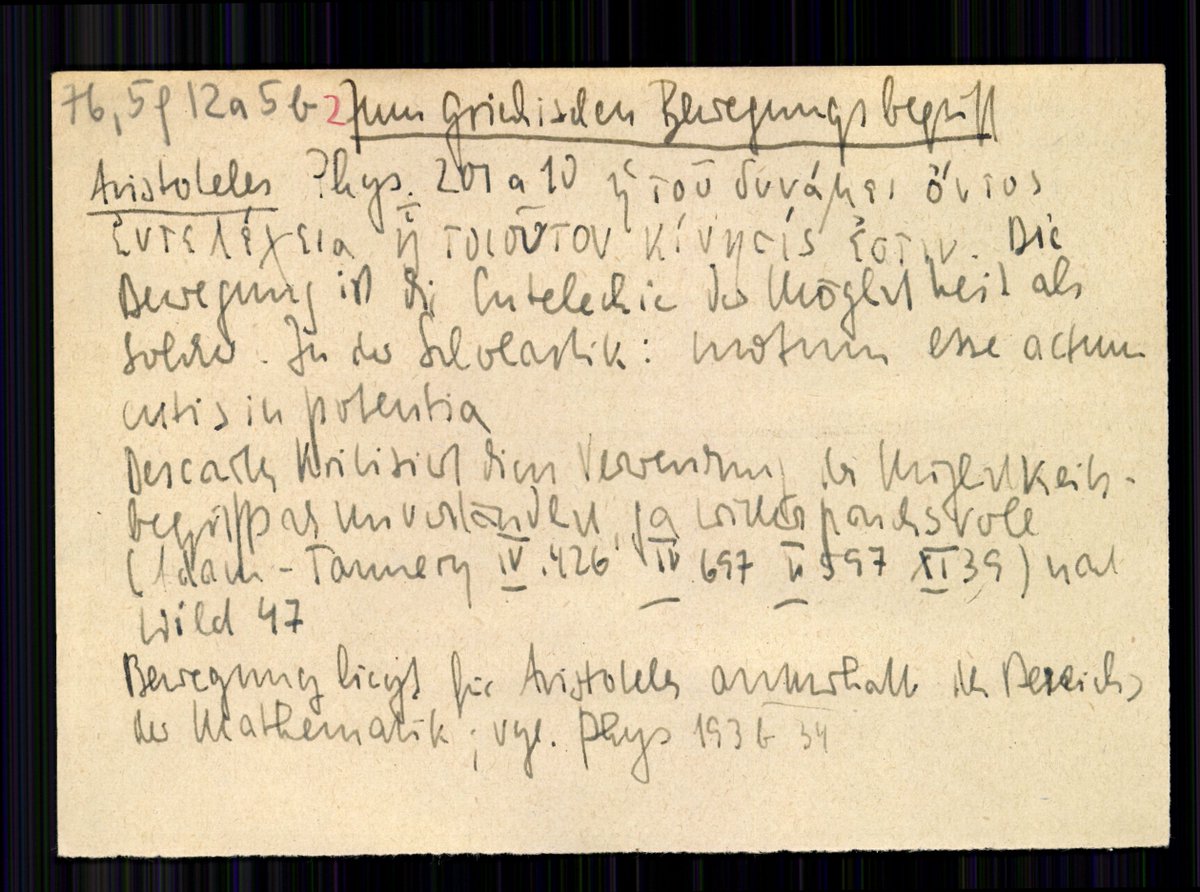 76,5f 12a5b-2 Zum griechischen Bewegungsbegriff
Aristoteles Phys. 201 a 10 ἡ τοῦ δυνάμει ὄντος
ἐντελέχεια ᾗ τοιοῦτον κίνησίς ἐστιν. Die
Bewegung ist die Entelechie der Möglichkeit als
solcher. In der Scholastik: motum esse actum
entis in potentia
Descartes kritisiert diese Verwendung des Möglichkeits-
begriffs als unverständlich, ja widerspruchsvoll
(Adam-Tannery IV .426 IV 697 II 597 XI 39) nach
Wild 47
Bewegung liegt für Aristoteles ausserhalb des Bereichs
der Mathematik; vgl. Phys 193 b 34